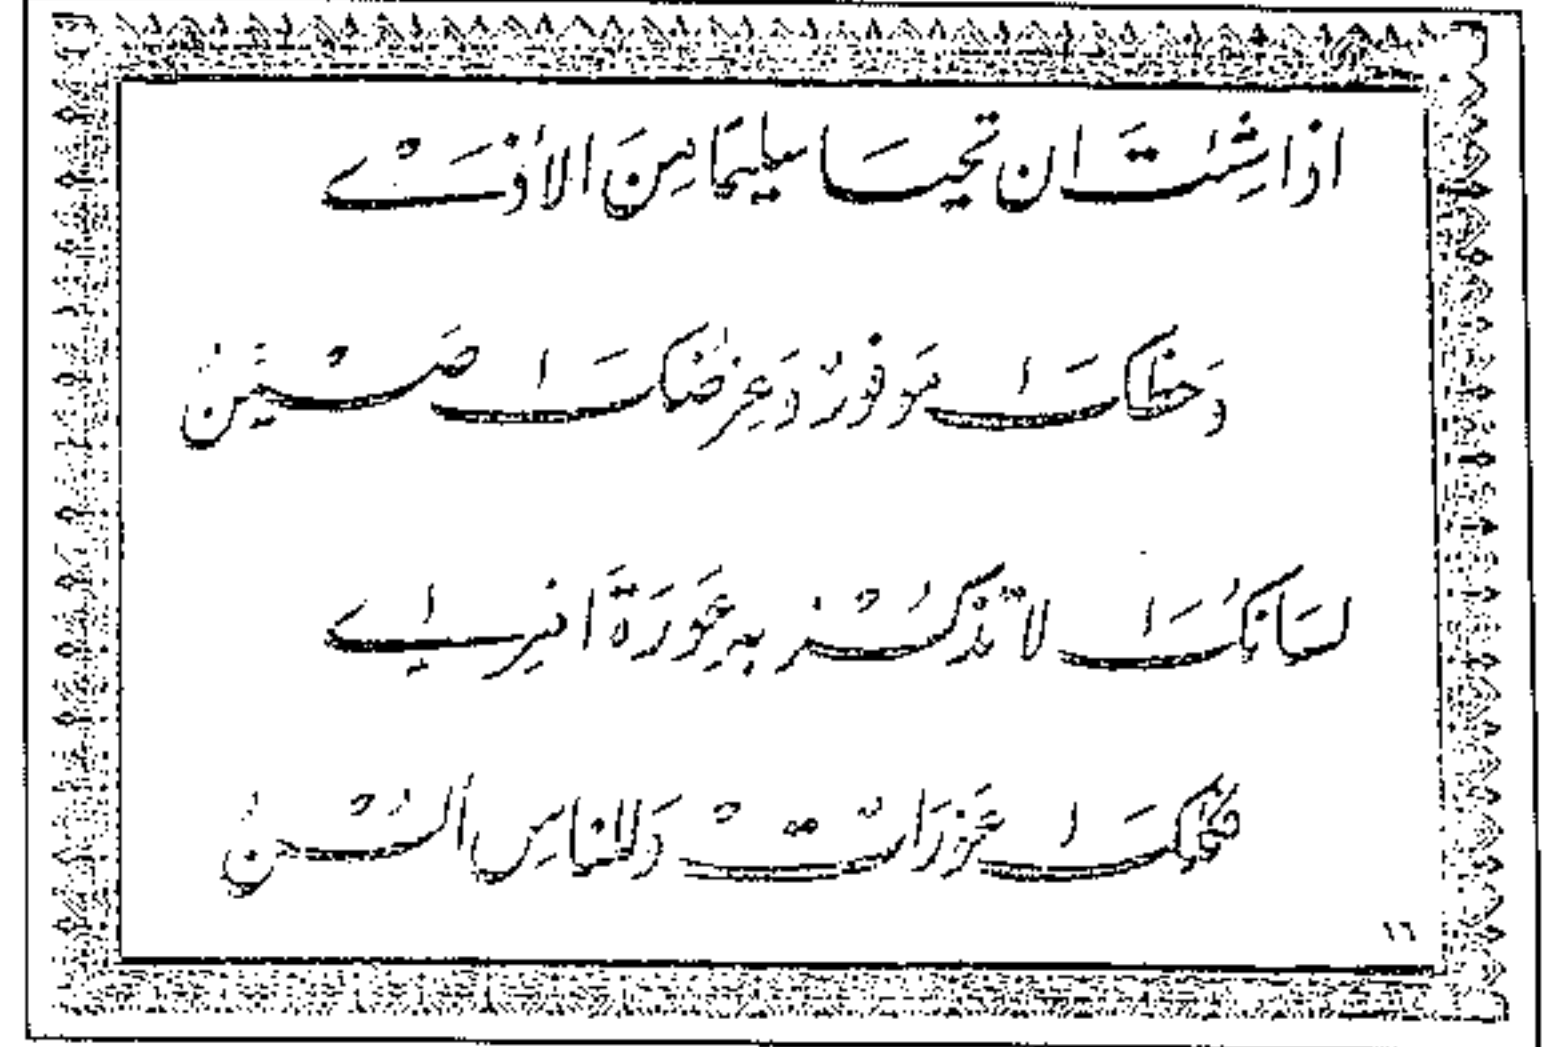 اذا شِئتَ ان تحيَا سليمًا مِنَ الأذَىْ
وَحظكَ مَوفورٌ وَعِرضُكَ صَيْنٌ
لسَانكُ لا تَذكُرْ بهِ عَورَةَ امرِئ
فكُلكَ عَورَاتْ وَللناسِ ألسُنْ
١٦